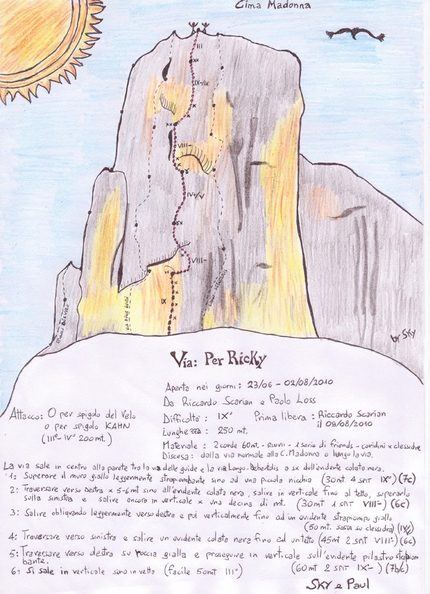 Cima Madonna
III
IX-/IX
VIII-
IV+/V
VIII-
IX
by Sky
Via: Per Ricky
Aperta nei giorni: 23/06 - 02/08/2010
Da Riccardo Scarian e Paolo Loss
Attacco: O per spigolo del Velo
o per spigolo KAHN
(III° IV° 200mt.)
Difficoltà: IX° Prima libera: Riccardo Scarian
il 09/08/2010
Lunghezza: 250 mt.
Materiale: 2 corde 60mt - - 1 serie di friends - cordini x clessidre
Discesa: dalla via normale alla C. Madonna o lungo la via.
La via sale in centro alla parete tra la via delle guide e la via Langes a sx dell'evidente colata nera.
1: Superare il muro giallo leggermente strapiombante sino ad una piccola nicchia (30mt 4 SNT IX°) (7c)
2: Traversare verso destra x 5-6mt sino all'evidente colata nera, salire in verticale fino al tetto, superarlo
sulla sinistra e salire ancora in verticale x una decina di mt. (30mt 1 SNT VIII-) (6c)
3: Salire obliquando leggermente verso destra e poi verticalmente fino ad un evidente strapiombo giallo
(50 mt. sosta su clessidra)
4: Traversare verso sinistra e salire un evidente colata nera fino ad un tetto (45mt 2 SNT VIII-) (6c)
5: Traversare verso destra su roccia gialla e proseguire in verticale sull'evidente pilastro
bante. (60mt 2 SNT IX-)
6: Si sale in verticale sino in vetta (facile 50mt III°)
SKY e Paul